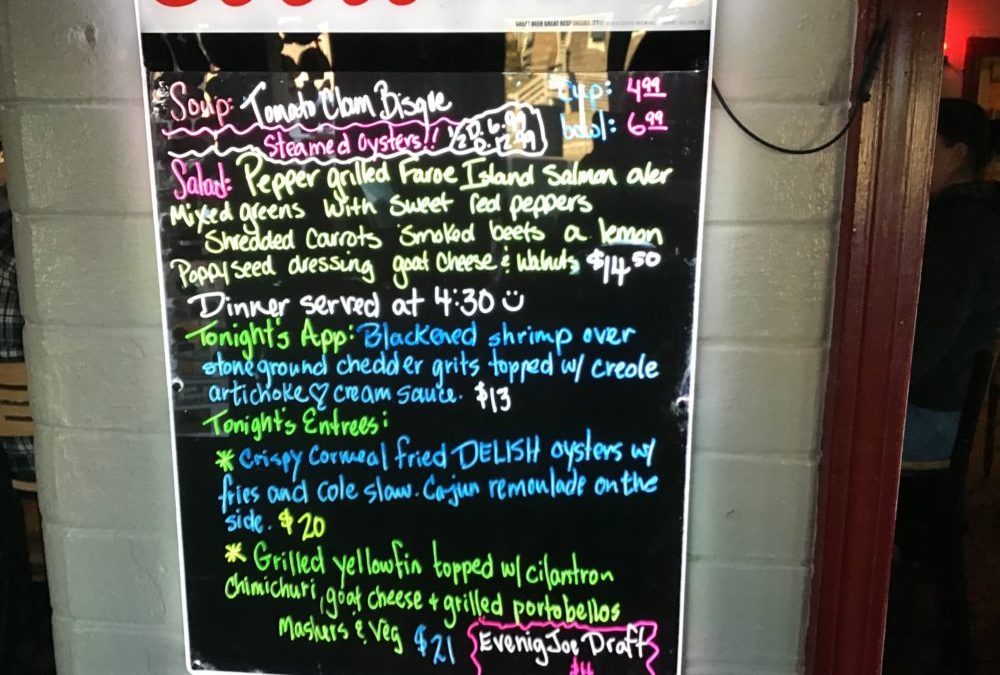 Soup: Tomato Clam Bisque cup: 4.99
Steamed Oysters!! 1/2 D. 6.99 bowl: 6.99
D. 12.99
Salad: Pepper grilled Faroe Island Salmon over
Mixed greens with sweet red peppers
Shredded Carrots Smoked beets a lemon
Poppyseed dressing goat cheese & walnuts $14.50
Dinner served at 4:30
Tonight's App: Blackened shrimp over
stoneground chedder grits topped w/ creole
artichoke cream sauce. $13
Tonight's Entrees:
* Crispy Cormeal fried DELISH oysters w/
fries and cole slaw. Cajun remoulade on the
side. $20
* Grilled yellowfin topped w/ cilantron
Chimichuri, goat cheese + grilled portobellos
Mashers & Veg $21
Evenig Joe Draft